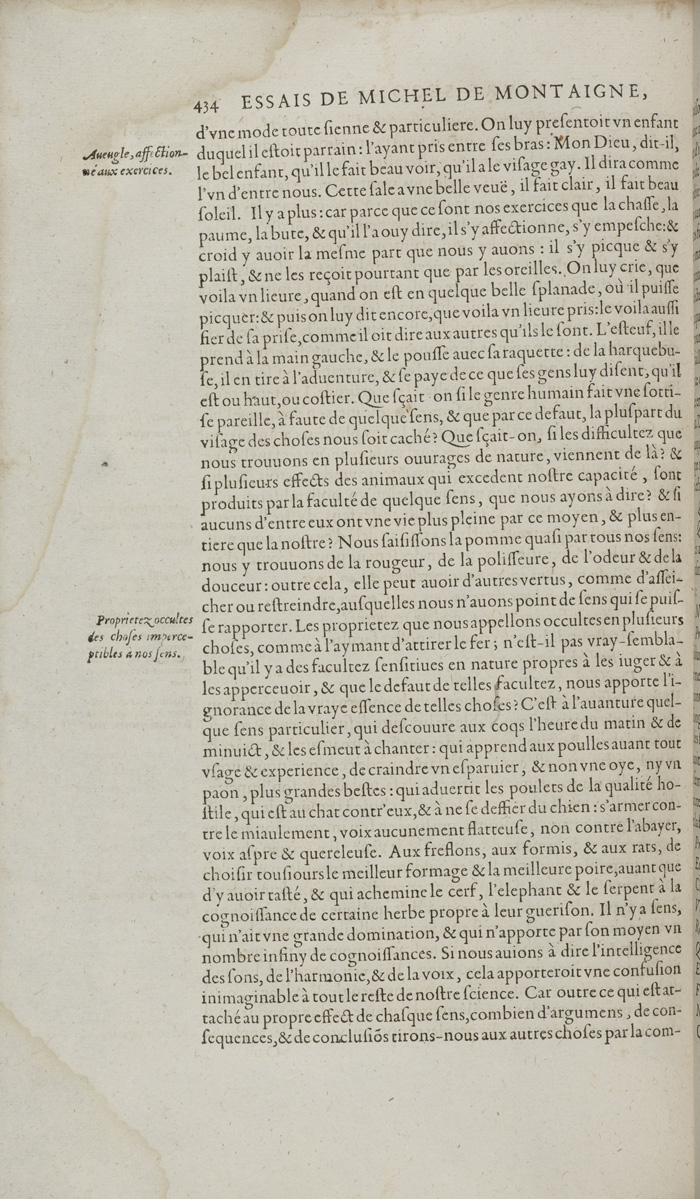 434 ESSAIS DE MICHEL DE MONTAIGNE,
d'vne mode toute ſienne & particuliere. On luy preſentoit vn enfant
Aueugle, affection-
né aux exercices.
duquel il eſtoit parrain: l'ayant pris entre ſes bras: Mon Dieu, dit-il,
le bel enfant, qu'il le fait beau voir, qu'il a le viſage gay. Il dira comme
l'vn d'entre nous. Cette ſale a vne belle veuë, il fait clair, il fait beau
ſoleil. Il y a plus: car parce que ce ſont nos exercices que la chaſſe, la
paume, la bute, & qu'il l'a ouy dire, il s'y affectionne, s'y empeſche: &
croid y auoir la meſme part que nous y auons: il s'y picque & s'y
plaiſt, & ne les reçoit pourtant que par les oreilles. On luy crie, que
voila vn lieure, quand on eſt en quelque belle ſplanade, où il puiſſe
picquer: & puis on luy dit encore, que voila vn lieure pris: le voila auſſi
fier de ſa priſe, comme il oit dire aux autres qu'ils le ſont. L'eſteuf, il le
prend à la main gauche, & le pouſſe auec ſa raquette: de la harquebu-
ſe, il en tire à l'aduenture, & ſe paye de ce que ſes gens luy diſent, qu'il
eſt ou haut, ou coſtier. Que ſçait on ſi le genre humain fait vne ſotti-
ſe pareille, à faute de quelque ſens, & que par ce defaut, la pluſpart du
viſage des choſes nous ſoit caché? Que ſçait-on, ſi les difficultez que
nous trouuons en pluſieurs ouurages de nature, viennent de là? &
ſi pluſieurs effects des animaux qui excedent noſtre capacité, ſont
produits par la faculté de quelque ſens, que nous ayons à dire? & ſi
aucuns d'entre eux ont vne vie plus pleine par ce moyen, & plus en-
tiere que la noſtre? Nous ſaiſiſſons la pomme quaſi par tous nos ſens:
nous y trouuons de la rougeur, de la poliſſeure, de l'odeur & de la
douceur: outre cela, elle peut auoir d'autres vertus, comme d'aſſei-
cher ou reſtreindre, auſquelles nous n'auons point de ſens qui ſe puiſ-
Proprietez occultes
des choſes imperce-
ptibles a nos ſens.
ſe rapporter. Les proprietez que nous appellons occultes en pluſieurs
choſes, comme à l'aymant d'attirer le fer; n'eſt-il pas vray-ſembla-
ble qu'il y a des facultez ſenſitiues en nature propres à les iuger & à
les apperceuoir, & que le defaut de telles facultez, nous apporte l'i-
gnorance de la vraye eſſence de telles choſes? C'eſt à l'auanture quel-
que ſens particulier, qui deſcouure aux coqs l'heure du matin & de
minuict, & les eſmeut à chanter: qui apprend aux poulles auant tout
vſage & experience, de craindre vn eſparuier, & non vne oye, ny vn
paon, plus grandes beſtes: qui aduertit les poulets de la qualité ho-
ſtile, qui eſt au chat contr'eux, & à ne ſe deffier du chien: s'armer con-
tre le miaulement, voix aucunement flatteuſe, non contre l'abayer,
voix aſpre & quereleuſe. Aux freſlons, aux formis, & aux rats, de
choiſir touſiours le meilleur formage & la meilleure poire, auant que
d'y auoir taſté, & qui achemine le cerf, l'elephant & le ſerpent à la
cognoiſſance de certaine herbe propre à leur gueriſon. Il n'y a ſens,
qui n'ait vne grande domination, & qui n'apporte par ſon moyen vn
nombre infiny de cognoiſſances. Si nous auions à dire l'intelligence
des ſons, de l'harmonie, & de la voix, cela apporteroit vne confuſion
inimaginable à tout le reſte de noſtre ſcience. Car outre ce qui eſt at-
taché au propre effect de chaſque ſens, combien d'argumens, de con-
ſequences, & de concluſiõs tirons-nous aux autres choſes par la com-